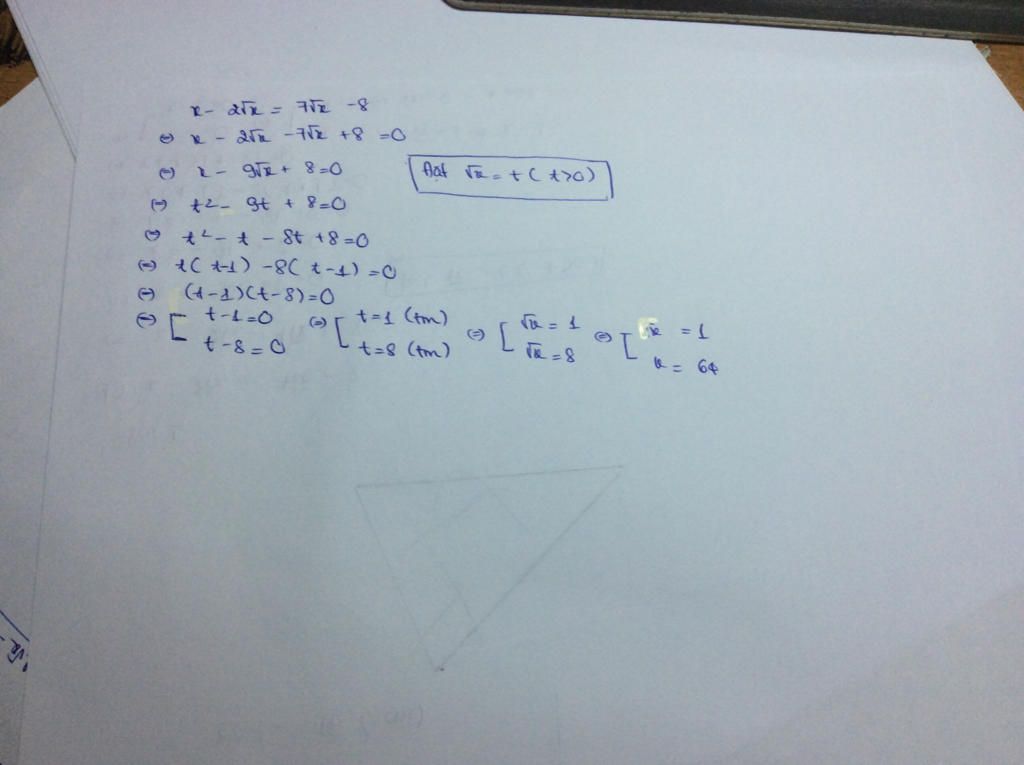 x - 2√x = 7√x - 8
⇔ x - 2√x - 7√x + 8 = 0
⇔ x - 9√x + 8 = 0
Đặt √x = t ( t>0 )
⇔ t² - 9t + 8 = 0
⇔ t² - t - 8t + 8 = 0
⇔ t( t-1 ) - 8( t-1 ) = 0
⇔ (t-1)(t-8) = 0
⇔ [ t-1=0 ⇔ [ t=1 (tm) ⇔ [ √x = 1 ⇔ [ x = 1
t-8=0 t=8 (tm) √x = 8 x = 64